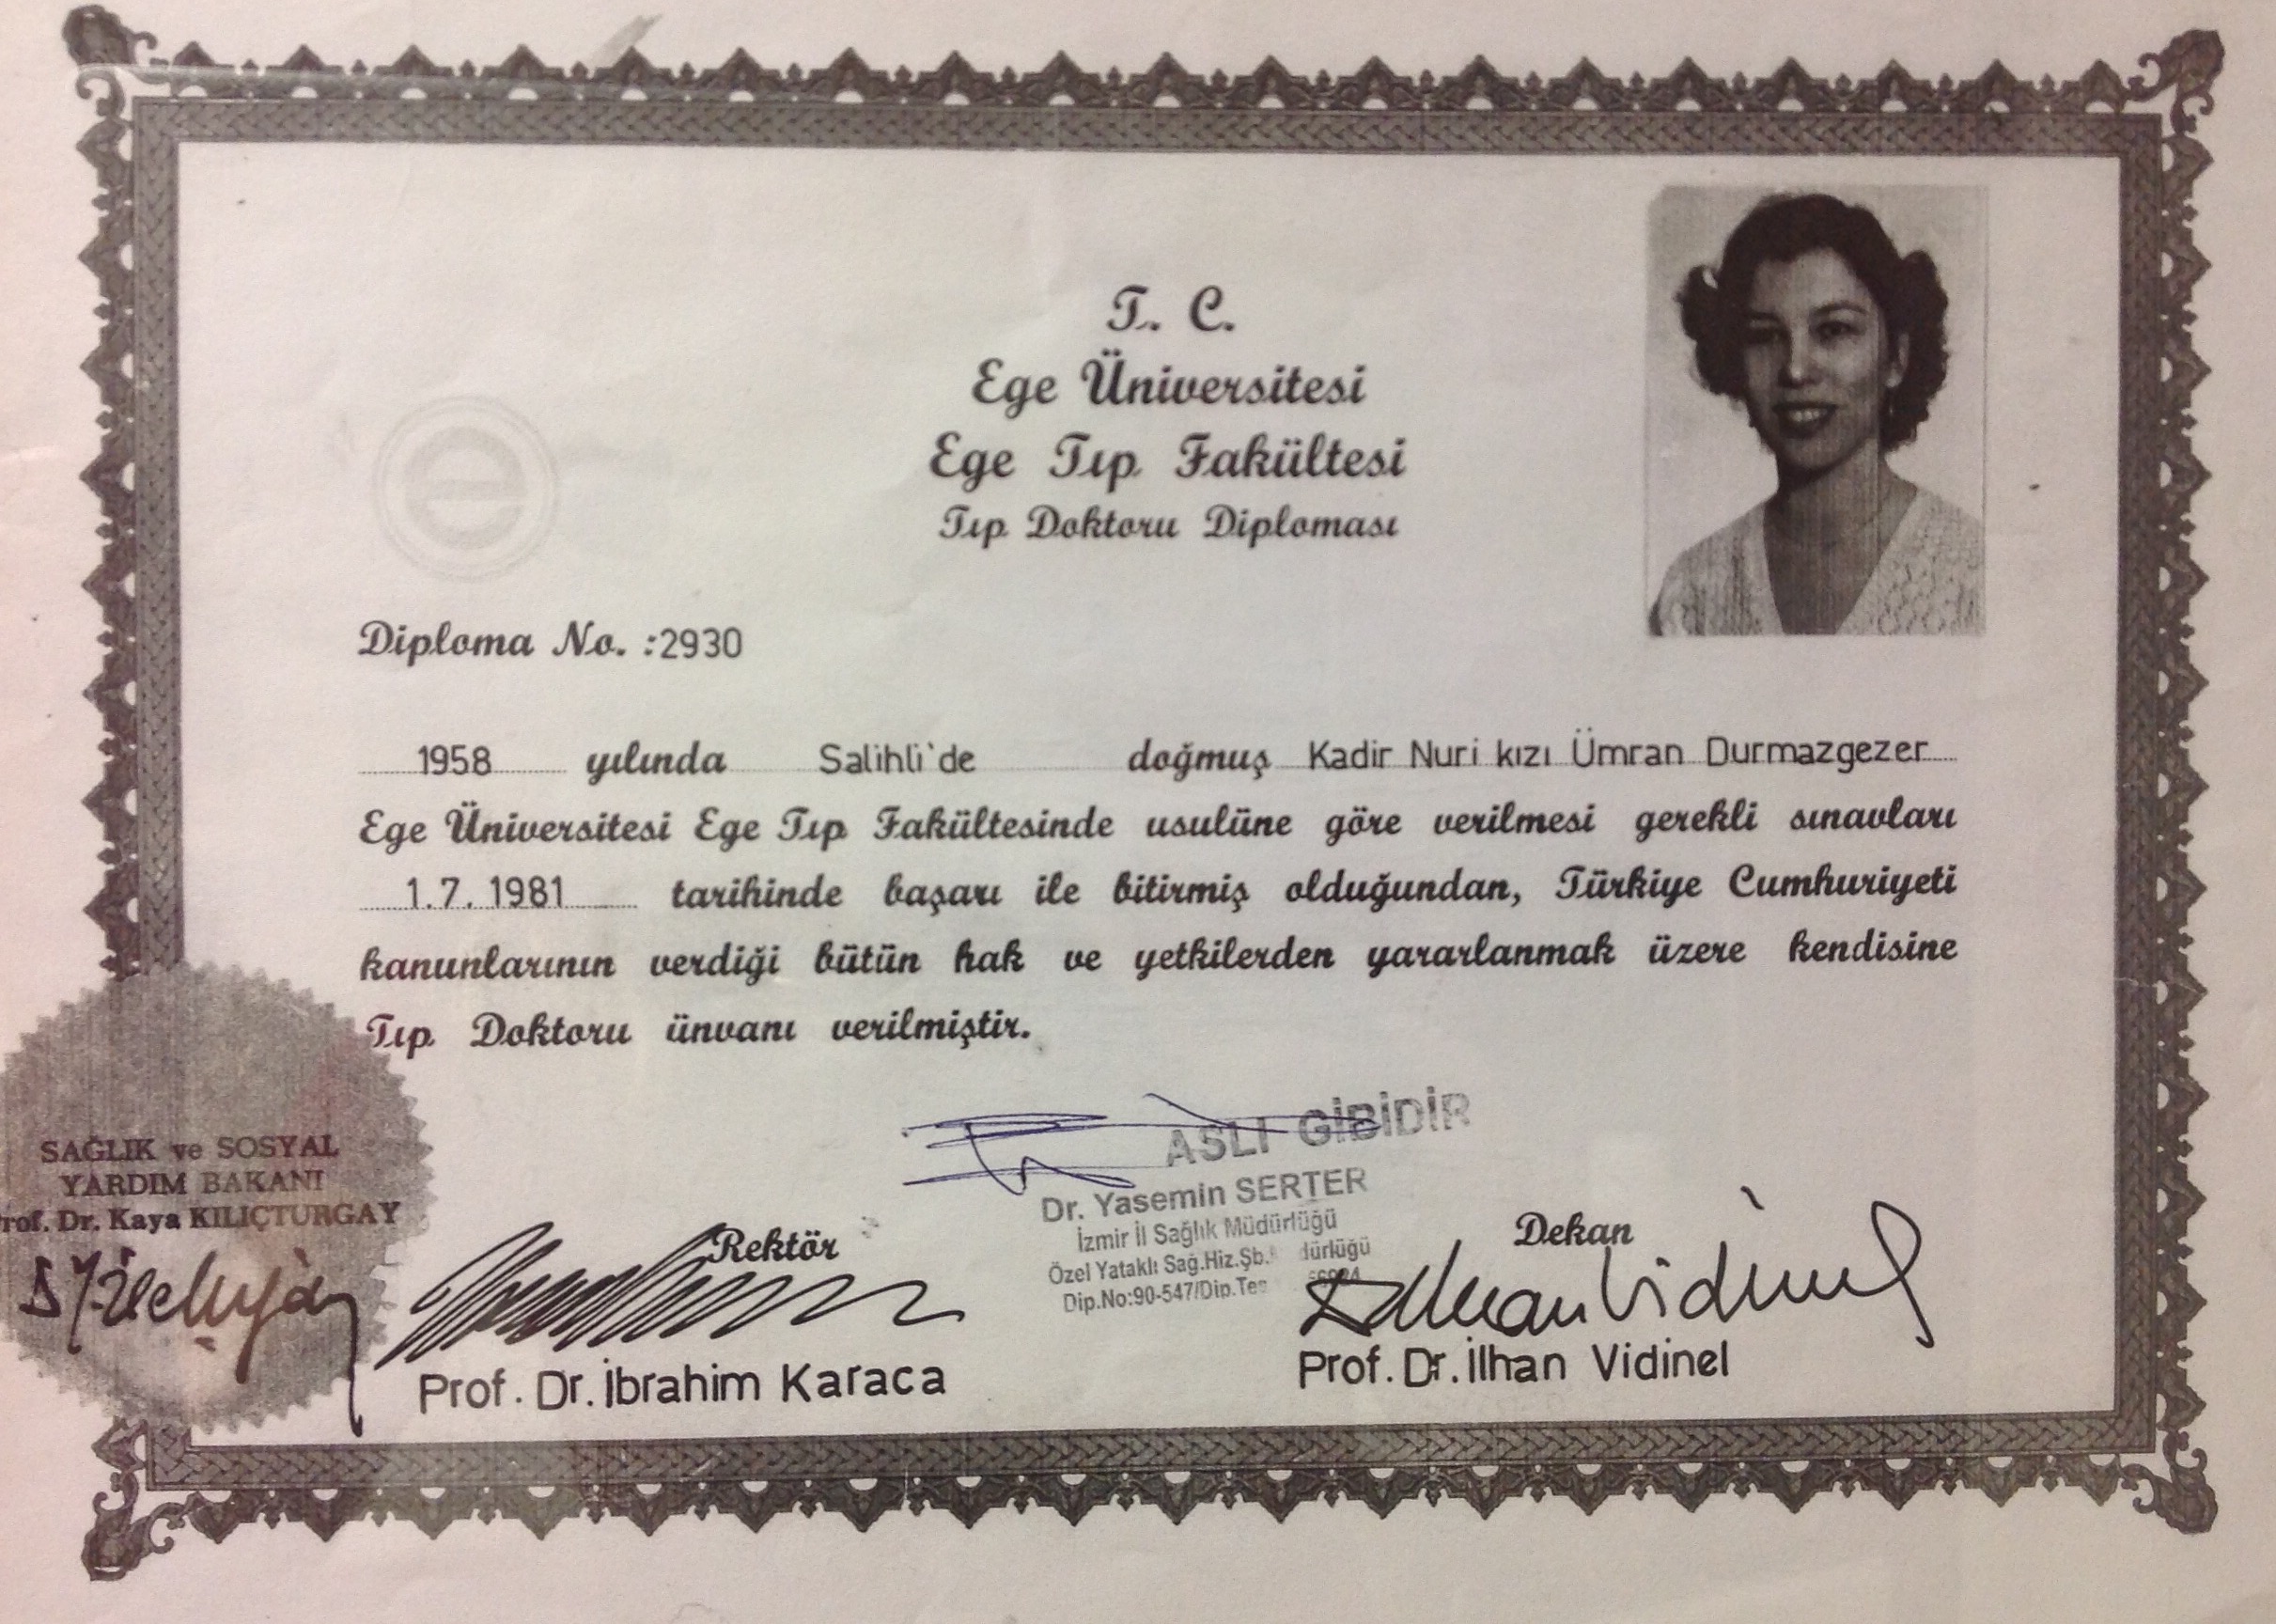 T. C.
Ege Üniversitesi
Ege Tıp Fakültesi
Tıp Doktoru Diploması
e
Diploma No. :2930
1958 yılında Salihli'de doğmuş Kadir Nuri kızı Ümran Durmazgezer
Ege Üniversitesi Ege Tıp Fakültesinde usulüne göre verilmesi gerekli sınavları
1.7.1981 tarihinde başarı ile bitirmiş olduğundan, Türkiye Cumhuriyeti
kanunlarının verdiği bütün hak ve yetkilerden yararlanmak üzere kendisine
Tıp Doktoru ünvanı verilmiştir.
SAĞLIK ve SOSYAL
YARDIM BAKANI
Prof. Dr. Kaya KILIÇTURGAY
Rektör
Prof. Dr. İbrahim Karaca
ASLI GİBİDİR
Dr. Yasemin SERTER
İzmir İl Sağlık Müdürlüğü
Özel Yataklı Sağ.Hiz.Şb.
Dip.No:90-547/Dip.Tes
Dekan
Prof. Dr. İlhan Vidinel